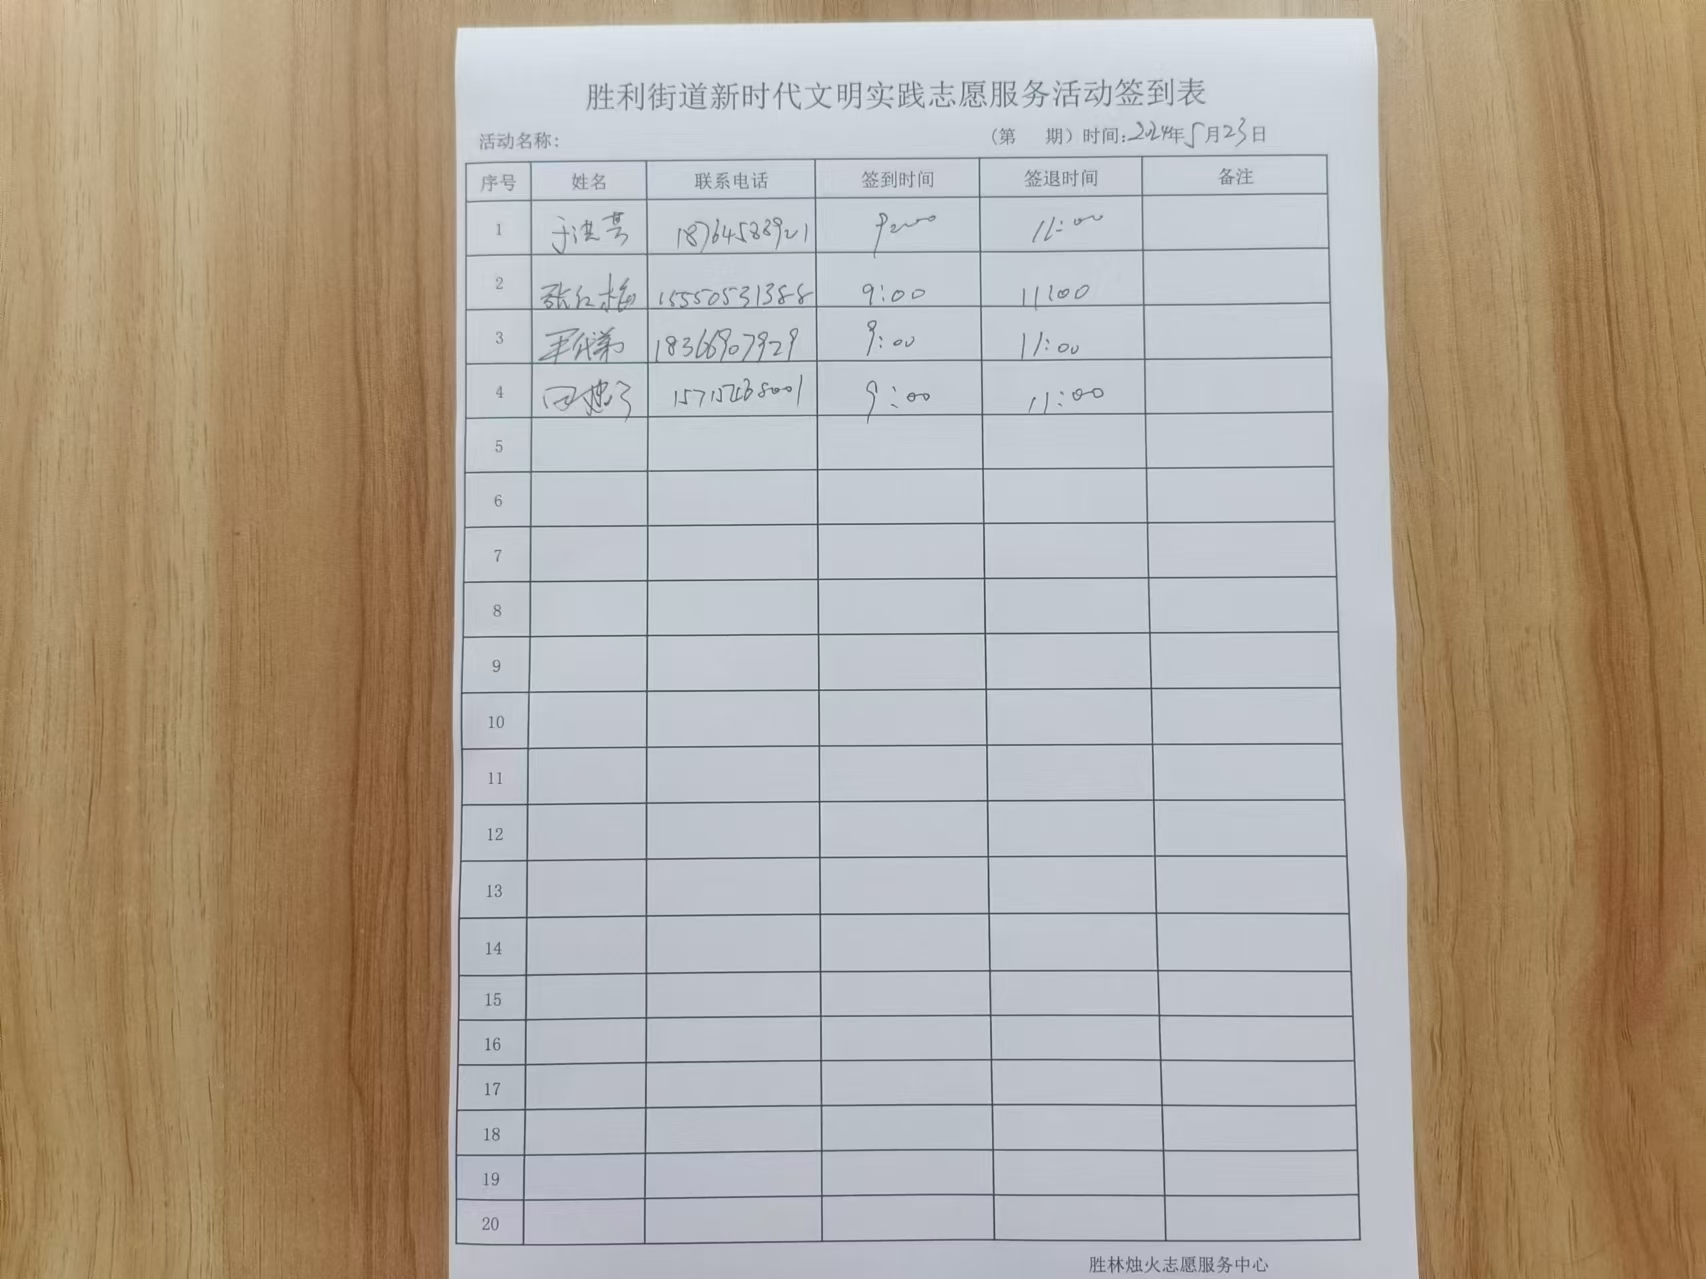 胜利街道新时代文明实践志愿服务活动签到表
活动名称: (第 期) 时间: 2024年5月23日
序号 姓名 联系电话 签到时间 签退时间 备注
1 于洪芸 18764583921 9:00 11:00
2 张红梅 15550531388 9:00 11:00
3 18366907929 9:00 11:00
4 9:00 11:00
5
6
7
8
9
10
11
12
13
14
15
16
17
18
19
20
胜林烛火志愿服务中心